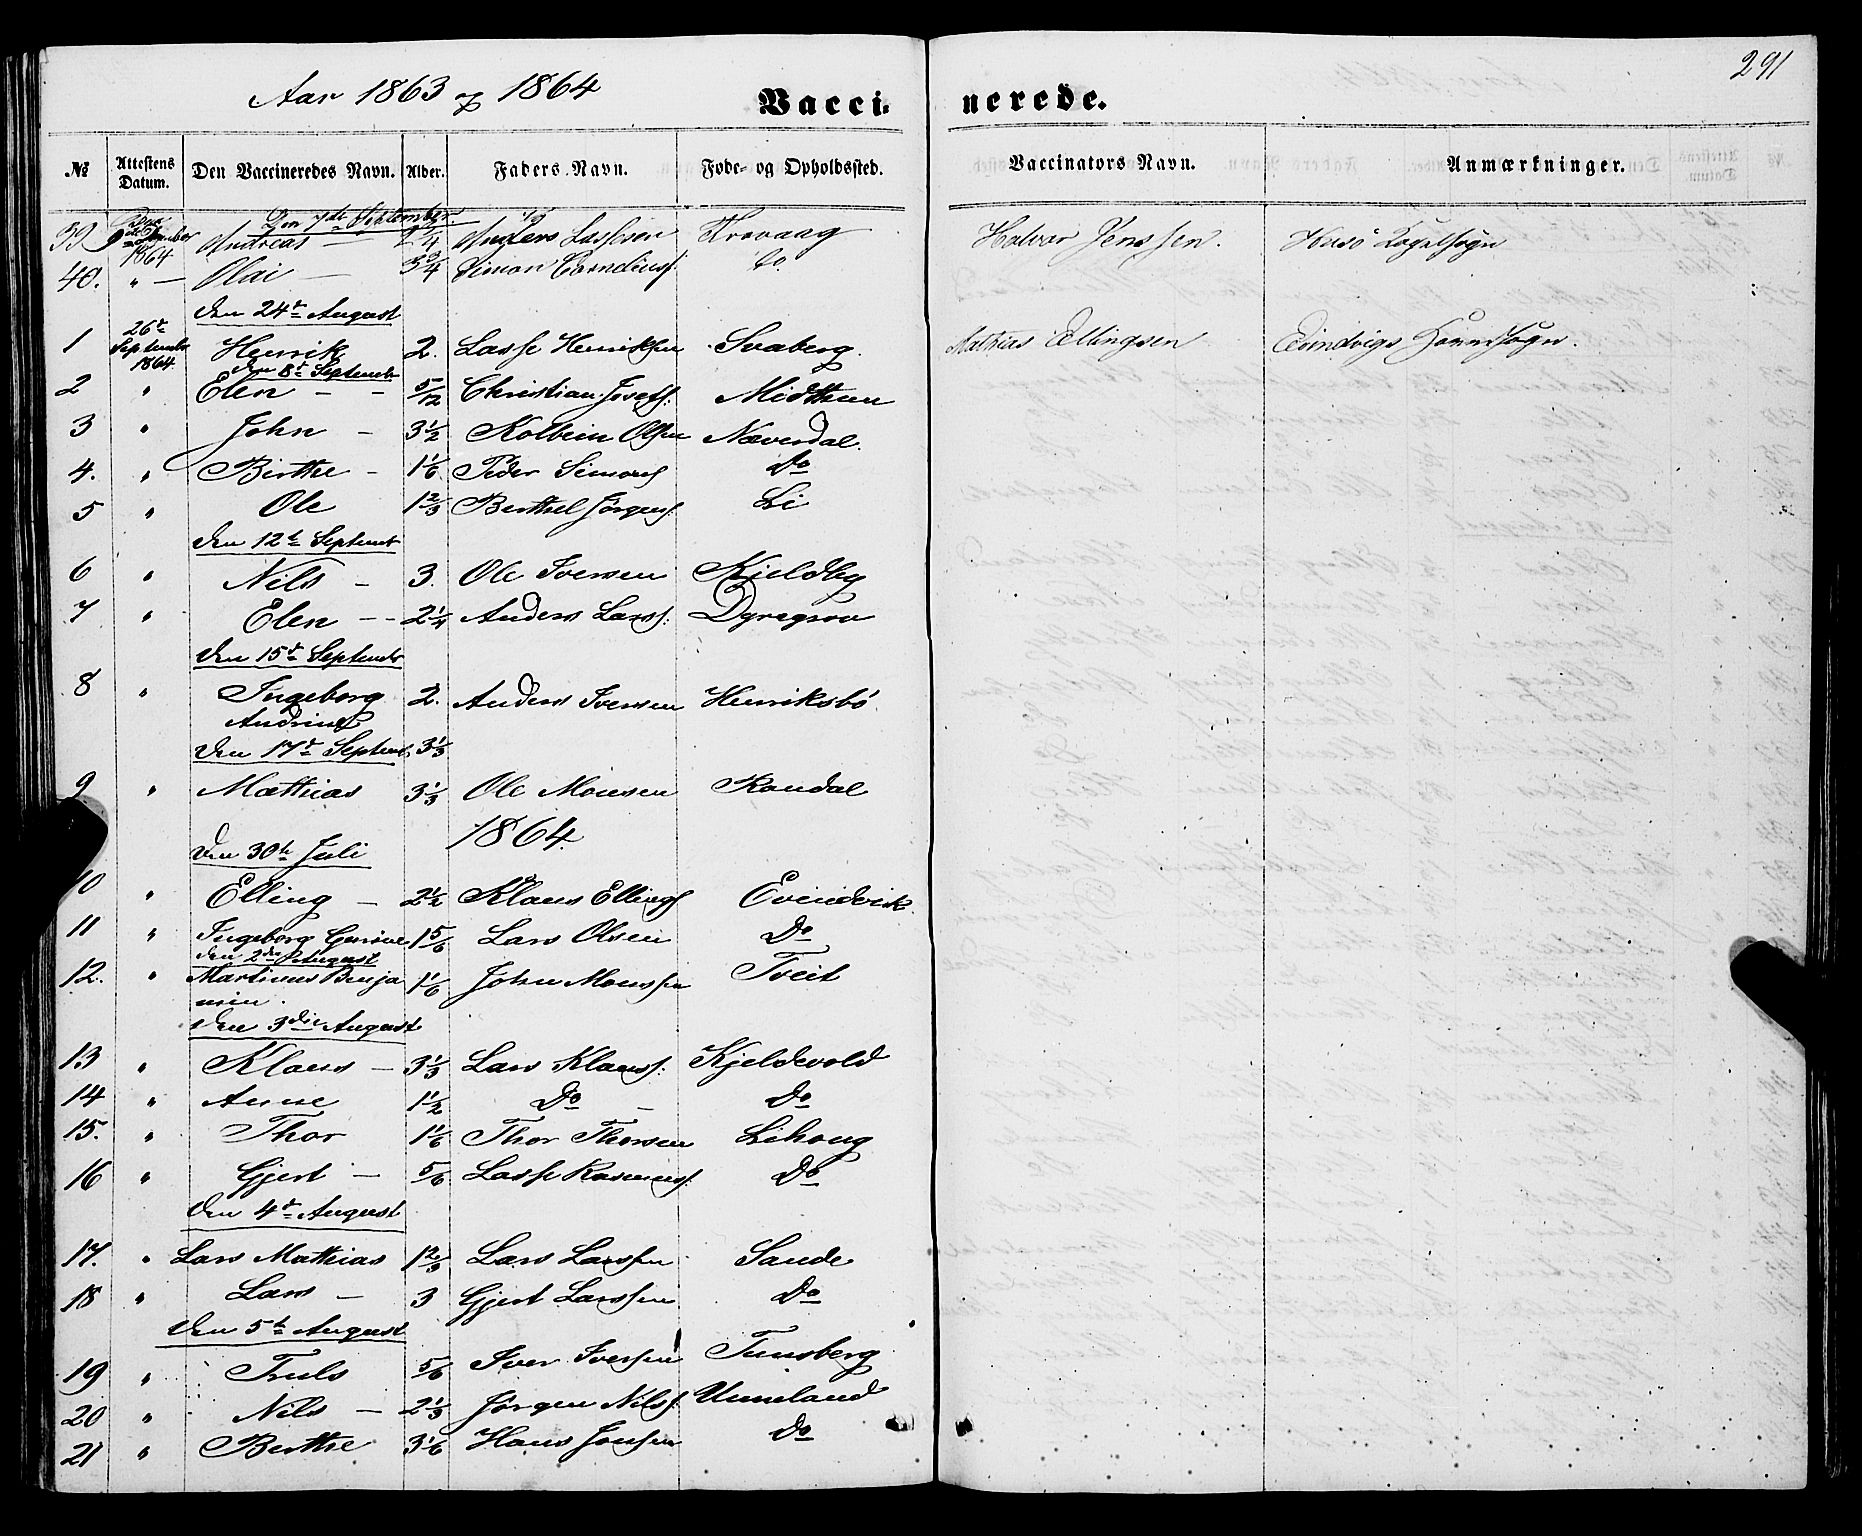 291
Aar 1863 og 1864
Vaccinerede.
№ Attestens Datum. Den Vaccineredes Navn. Alder. Faders Navn. Føde- og Opholdssted. Vaccinators Navn. Anmærkninger.
Den 7de September
39 1864 Andreas — 2 3/4 Anders Lassesen Krovaag Halvor Jenssen. Husö Sognesogn
40. " — Olai — 3 3/4 Simon Corneliuss. Do
Den 24de August
1 26de Septembr 1864 Henrik 2. Lasse Henriksen Svaberg. Mathias Ellingsen Evindvigs Hovedsogn.
Den 8de Septembr
2 " Elen — — 5/12 Christian Josefs: Midttun
3 " John — 3 1/2 Kolbein Olsen Næverdal.
4. " Birthe — 1 1/6 Peder Simons Do
5 " Ole 1 2/3 Berthel Jörgens. Li
Den 12te Septembr
6 " Nils — 3. Ole Iversen Kjeldby
7 " Elen — — 2 1/4 Anders Larss: Dyregrov
Den 15de Septembr
8 " Ingeborg Andrine 2. Anders Iversen Henriksbö
Den 17de Septembr. 3 1/3
9 " Matthias 3 1/3 Ole Monsen Randal
1864.
Den 30te Juli
10 " Elling — 2 1/2 Klaus Ellings Evindvik.
11 " Ingeborg 1 5/6 Lars Olsen Do
Den 2den August
12. " Martinus Benja 1 1/6 John Monssen Tveit
min.
Den 3die August
13 " Klaus — 3 1/3 Lars Klauss: Kjeldevold
14 " Anne 1 1/2 Do — Do
15. " Thor 1 1/6 Thor Thorsen Lihoug
16 " Gjert — 5/6 Lasse Rasmuss. Do
Den 4de August
17. " Lars Mathias 1 2/3 Lars Larssen Sande
18 " Lars — 3 Gjert Larssen Do
Den 5te August
19 " Truls 5/6 Iver Iverssen Tunsberg
20 " Nils — 2 1/3 Jörgen Nilss. Unneland
21 " Berthe 3 1/6 Hans Jonsen Do